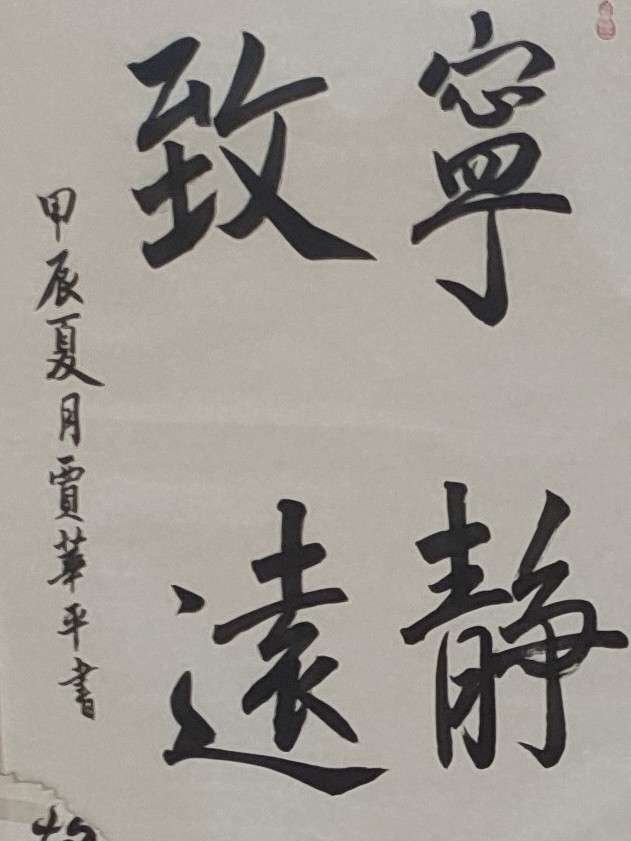 寧靜
致遠
甲辰夏月賈華平書